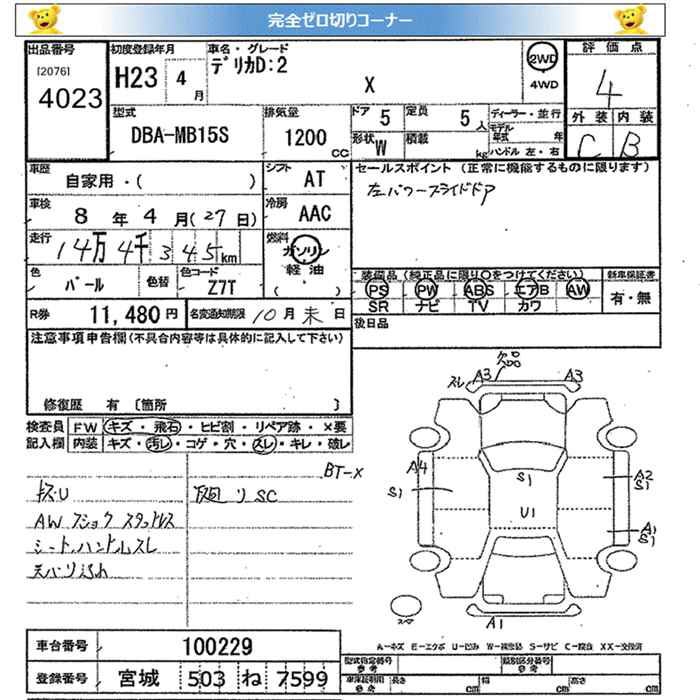 完全ゼロ切りコーナー
出品番号
[2076]
4023
初度登録年月
H23 4月
車名・グレード
デリカD:2
X
2WD
4WD
評価点
4
外装 内装
C B
型式
DBA-MB15S
排気量
1200 CC
ドア 5
定員 5人
形状 W
積載 kg
ディーラー・並行
モデル年式 年
ハンドル 左・右
車歴
自家用・( )
シフト AT
車検
8年 4月(27日)
冷房 AAC
走行
14万4千345km
燃料
ガソリン
軽油
( )
色 パール
色替
色コード Z7T
セールスポイント (正常に機能するものに限ります)
左パワースライドドア
装備品 (純正品に限り○をつけてください)
新車保証書
PS PW ABS エアB AW
SR ナビ TV カワ
有・無
R券 11,480円
名変通知期限 10月末日
後日品
注意事項申告欄(不具合内容等は具体的に記入して下さい)
修復歴 有 〔箇所 〕
検査員
記入欄
FW キズ・飛石・ヒビ割・リペア跡・×要
内装 キズ・汚レ・コゲ・穴・スレ・キレ・破レ
BT-X
AW スタッドレス
シート、ハンドルスレ
SC
欠品
スレ A3 A3
A4
S1
S1
U1
A2
S1
A1
S1
A1
スマ
車台番号 100229
登録番号 宮城 503 ね 7599
A-キズ E-エクボ U-凹み W-補修跡 S-サビ C-腐食 XX-交換済
型式指定番号
参考
類別区分番号
参考
車庫証明用
参考
長さ cm
幅 cm
高さ cm